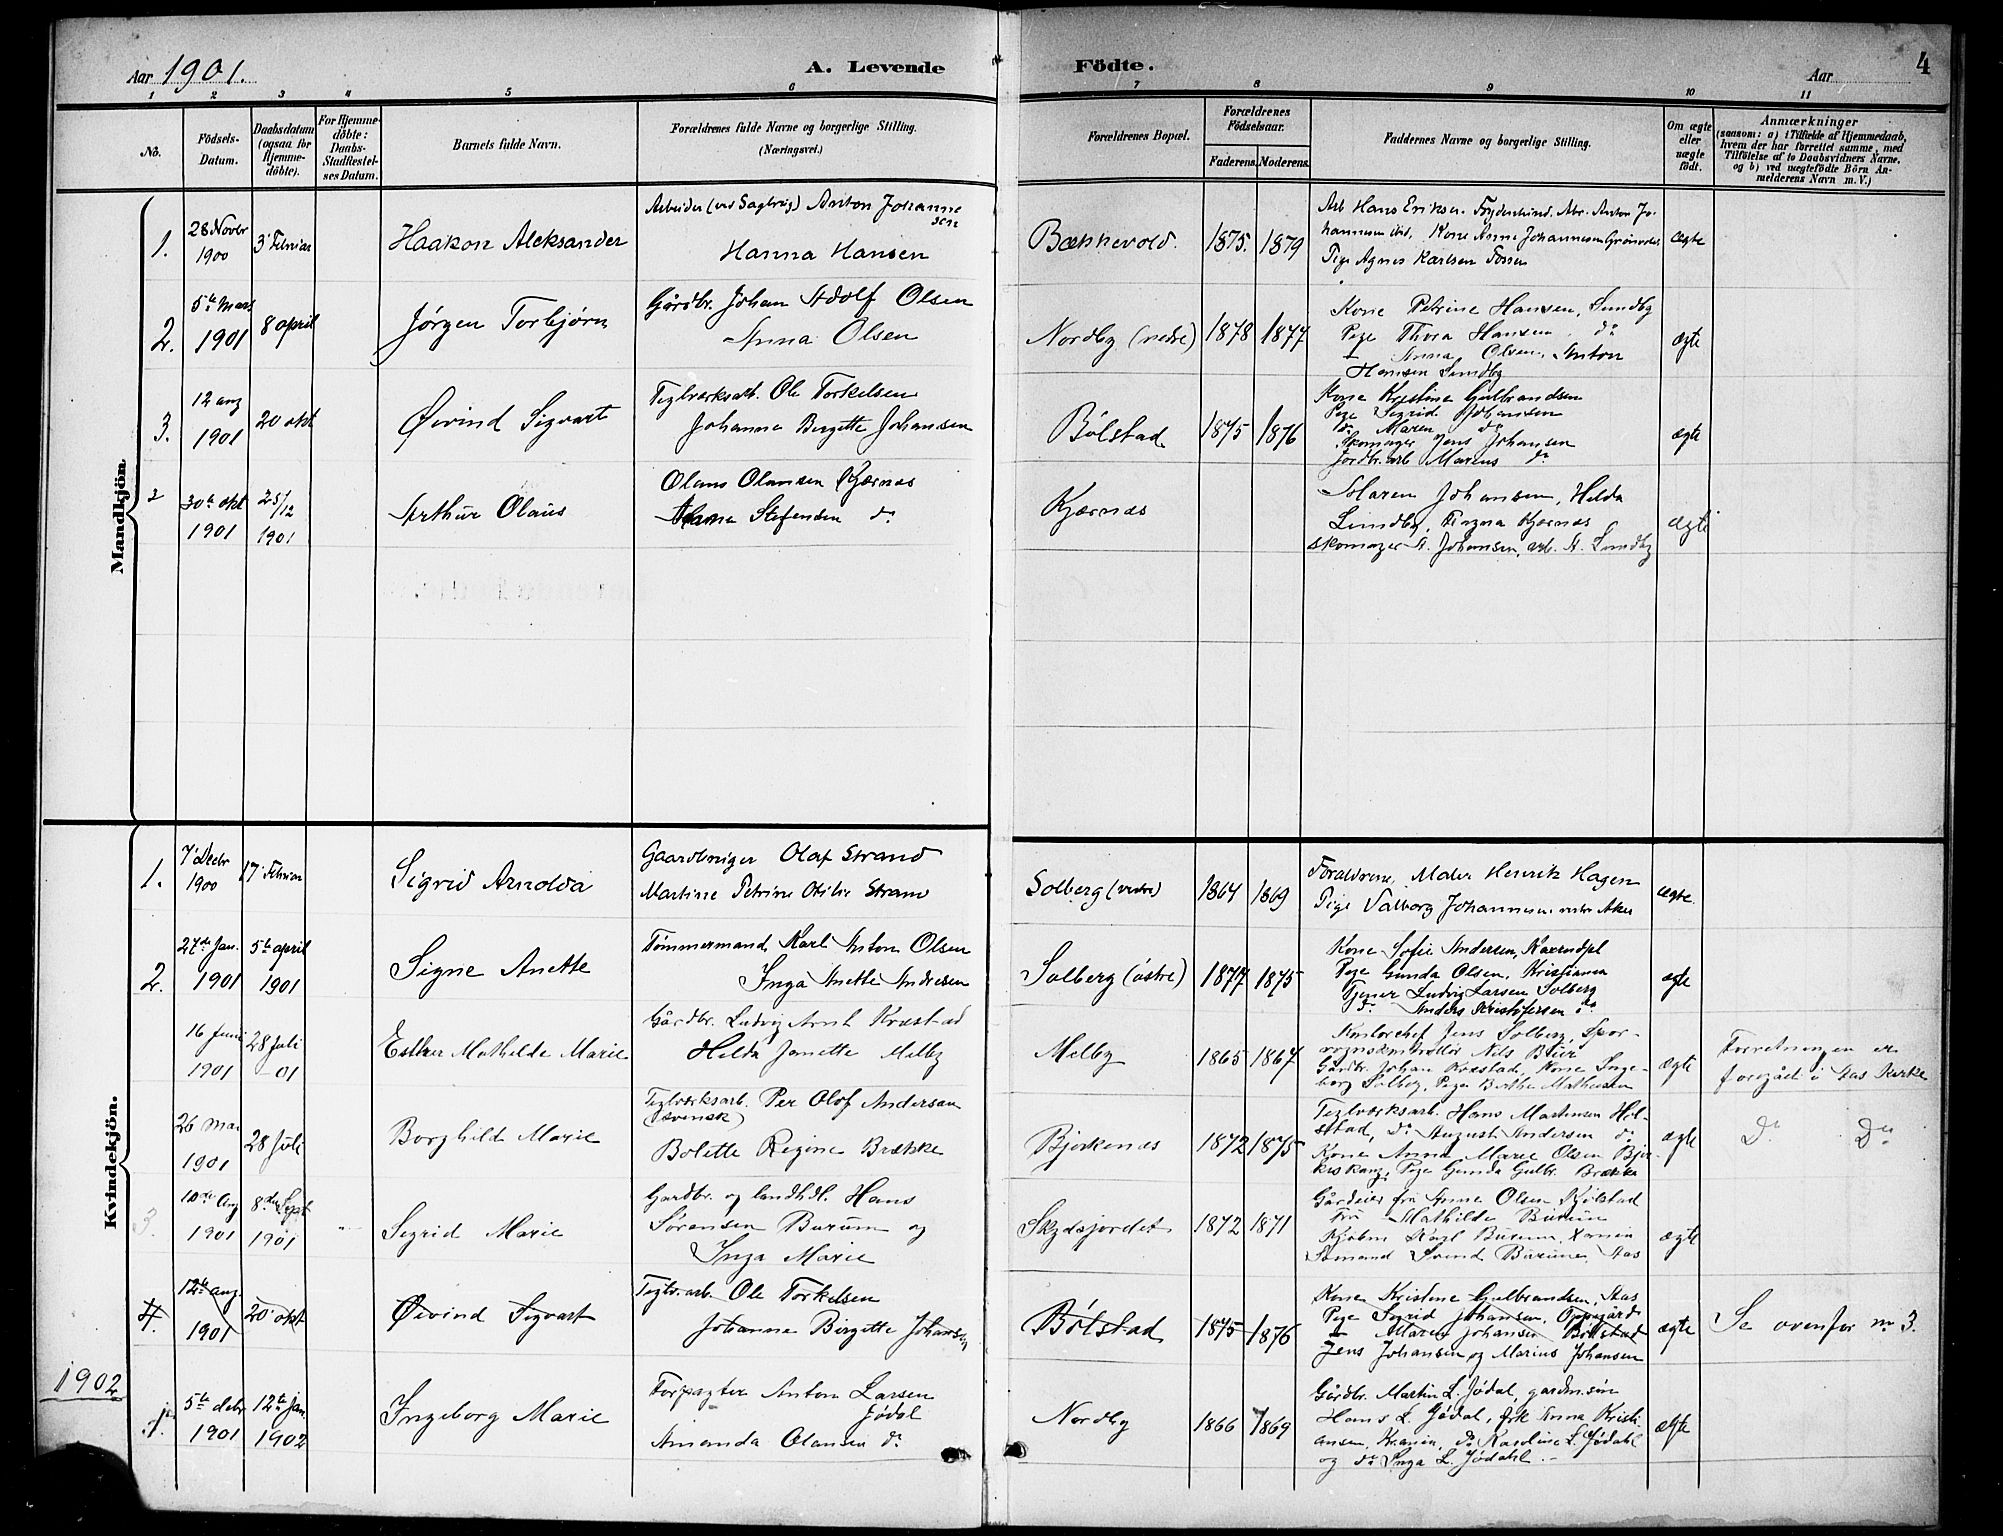 Aar 1901. A. Levende Födte. Aar 4
1 2 3 4 5 6 7 8 9 10 11
No. Födsels-Datum. Daabsdatum (ogsaa for Hjemmedöbte). For Hjemmedöbte: Daabs-Stadfæstelses Datum. Barnets fulde Navn. Forældrenes fulde Navne og borgerlige Stilling. (Næringsvei.) Forældrenes Bopæl. Forældrenes Födselsaar. Faderens. Moderens. Faddernes Navne og borgerlige Stilling. Om ægte eller uægte födt. Anmærkninger (saasom: a) i Tilfælde af Hjemmedaab, hvem der har forrettet samme, med Tilföielse af to Daabsvidners Navne, og b) ved uægtefödte Börn Anmelderens Navn m. V.)
Mandkjön.
1. 28 Novbr 1900 3' Februar Haakon Aleksander
Arbeider (ved Sagbrug) Anton Johannesen
Hanna Hansen
Bækkevold. 1875. 1879
Arb Hans Eriksen. Frydenlund. Arb. Anton Johannesen ibid, Kone Anne Johannesen
Pige Agnes Karlsen Fossen
ægte
2. 5te Mars 1901 8 april Jørgen Torbjørn
Gårdbr. Johan Adolf Olsen
Anna Olsen
Nordby (nedre) 1878 1877
Kone Petrine Hansen, Sundby
Pige Thora Hansen do
Anna Olsen, Anton
Hansen Sundby
ægte
3. 12 aug 1901 20 okt Øivind Sigvart
Teglværksarb. Ole Torkelsen
Johanne Birgitte Johansen
Bølstad 1875 1876
Kone Kristine Gulbrandsen
Pige Sigrid Johansen
do Maren do
Skomager Jens Johansen
Jordbr. arb Marius do
ægte
30te okt 1901 25/12 1901 Arthur Olaus
Olaus Olausen Kjærnæs
Stefensen do
Kjærnæs
Maren Johansen, Hilda
Lundby, Kjærnæs
Skomager A. Johansen, arb. A. Lundby
ægte
Kvindekjön.
1. 7' Decbr 1900 17' Februar Sigrid Arnolda
Gaardbruger Olaf Strand
Martine Petrine Otilie Strand
Solberg (vestre) 1864 1869
Forældrene, Maler Henrik Hagen
Pige Valborg Johannesen vestre Aker
ægte.
2. 27de Jan. 1901 5te april 1901 Signe Anette
Tømmermand Karl Anton Olsen
Inga Anette Andresen
Solberg (østre) 1877 1875
Kone Sofie Andersen,
Pige Gunda Olsen, Kristiania
Tjener Ludvig Larsen Solberg
do Anders Kristofersen do
ægte
16 Juni 1901 28 Juli 01 Esther Mathilde Marie
Gårdbr. Ludvig Arnt Krøstad
Hilda Janette Melby
Melby 1865 1867
Kontorchef Jens Solberg, Sporvognskontrollør Nils Bjier
Gårdbr. Johan Krøstad, Kone Ingeborg Solberg, Pige Berthe Mathiesen
ægte
Forretningen er
foregået i Aas Kirke
26 Mai 1901 28 Juli Borghild Marie
Teglværksarb. Per Olof Andersen
(svensk)
Bolette Regine Brække
Bjerkenæs 1872 1875
Teglværksarb. Hans Martinsen
do August Andersen do
Kone Anna Marie Olsen
Pige Gunda Gulbr. Brække
ægte
Do Do
3. 10de Aug 1901 8de Sept 1901 Sigrid Marie
Gardbr. og landhdl. Hans
Sørensen Burum og
Inga Marie
Skydsjordet 1872 1871
Gårdeier fru Anne Olsen Kjølstad
Fru Mathilde Burum
Kjøbm Karl Burum, Krania
Sømand Svend Burum, Aas
ægte
4. 12te aug. 1901 20 okt Øivind Sigvart
Teglv. arb. Ole Torkelsen
Johanne Birgitte Johansen
Bølstad 1875 1876
Kone Kristine Gulbrandsen, Aas
Pige Sigrid Johansen, Oppegård
Maren Johansen Bølstad
Jens Johansen og Marius Johansen
ægte
Se ovenfor no 3.
1902
1. 5te debr 1901 12te jan. 1902 Ingeborg Marie
Forpagter Anton Larsen
Jødal
Amanda Olausen do
Nordby 1866 1869
Gårdbr. Martin L. Jødal, gardm. søn
Hans L. Jødal, frk Anna Kristiansen, Krania, do Karoline L. Jødahl
og do Inga L. Jødahl.
ægte